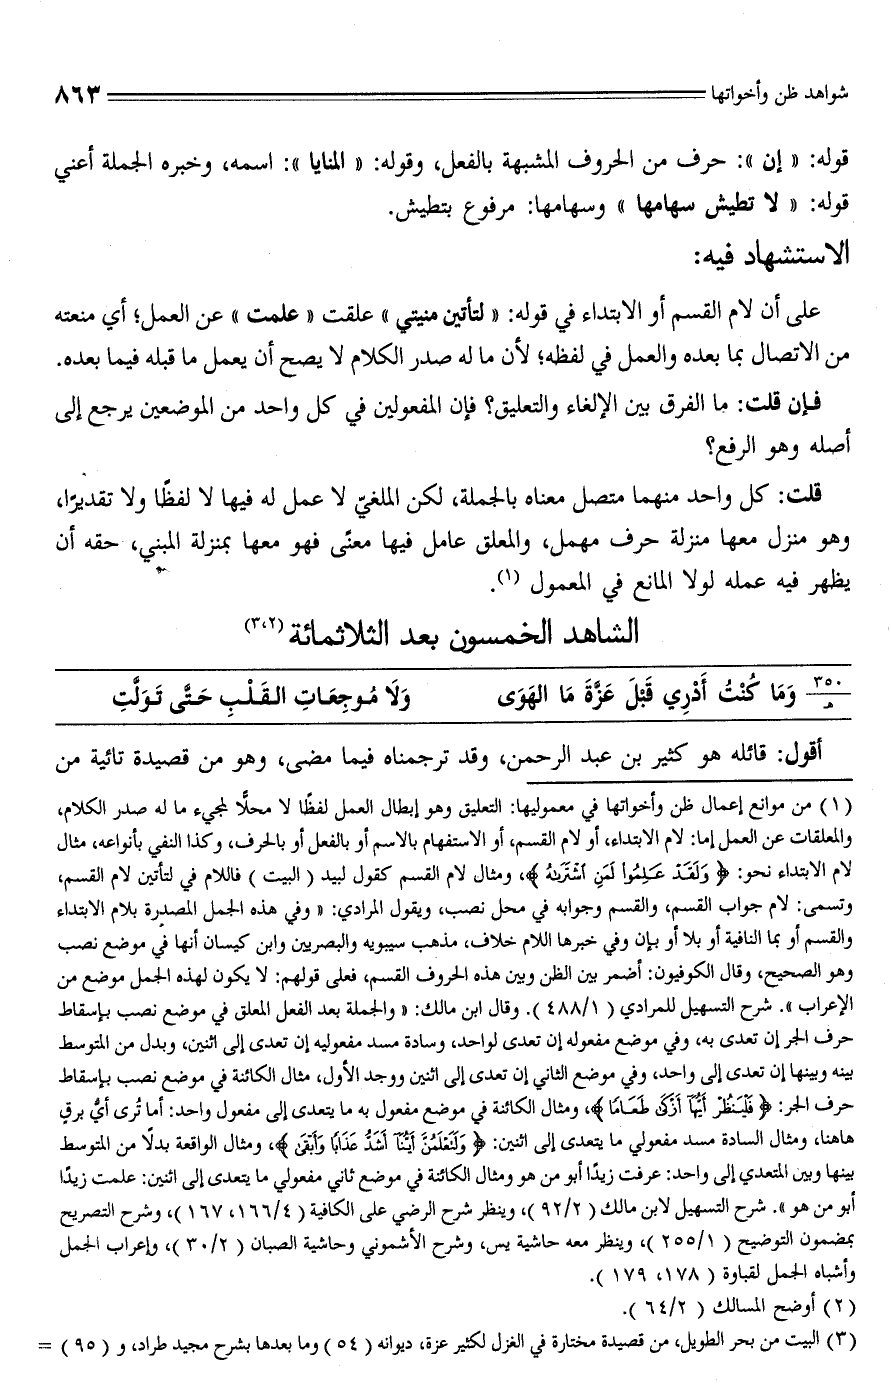 شواهد ظن وأخواتها ٨٦٣
قوله: « إن »: حرف من الحروف المشبهة بالفعل، وقوله: « المنايا »: اسمه، وخبره الجملة أعني
قوله: « لا تطيش سهامها » وسهامها: مرفوع بتطيش.
الاستشهاد فيه:
على أن لام القسم أو الابتداء في قوله: « لتأتين منيتي » علقت « علمت » عن العمل؛ أي منعته
من الاتصال بما بعده والعمل في لفظه؛ لأن ما له صدر الكلام لا يصح أن يعمل ما قبله فيما بعده.
فإن قلت: ما الفرق بين الإلغاء والتعليق؟ فإن المفعولين في كل واحد من الموضعين يرجع إلى
أصله وهو الرفع؟
قلت: كل واحد منهما متصل معناه بالجملة، لكن الملغيّ لا عمل له فيها لا لفظًا ولا تقديرًا،
وهو منزل معها منزلة حرف مهمل، والمعلق عامل فيها معنًى فهو معها بمنزلة المبني، حقه أن
يظهر فيه عمله لولا المانع في المعمول (١).
الشاهد الخمسون بعد الثلاثمائة (٣،٢)
٣٥٠ هـ وَمَا كُنْتُ أَدْرِي قَبْلَ عَزَّةَ مَا الهَوَى وَلَا مُوجِعَاتِ القَلْبِ حَتَّى تَوَلَّتِ
أقول: قائله هو كثير بن عبد الرحمن، وقد ترجمناه فيما مضى، وهو من قصيدة تائية من
(١) من موانع إعمال ظن وأخواتها في معموليها: التعليق وهو إبطال العمل لفظًا لا محلًّا لمجيء ما له صدر الكلام،
والمعلقات عن العمل إما: لام الابتداء، أو لام القسم، أو الاستفهام بالاسم أو بالفعل أو بالحرف، وكذا النفي بأنواعه، مثال
لام الابتداء نحو: ﴿ وَلَقَدْ عَلِمُوا لَمَنِ اشْتَرَاهُ ﴾، ومثال لام القسم كقول لبيد ( البيت ) فاللام في لتأتين لام القسم،
وتسمى: لام جواب القسم، والقسم وجوابه في محل نصب، ويقول المرادي: « وفي هذه الجمل المصدرة بلام الابتداء
والقسم أو بما النافية أو بلا أو بإن وفي خبرها اللام خلاف، مذهب سيبويه والبصريين وابن كيسان أنها في موضع نصب
وهو الصحيح، وقال الكوفيون: أضمر بين الظن وبين هذه الحروف القسم، فعلى قولهم: لا يكون لهذه الجمل موضع من
الإعراب ». شرح التسهيل للمرادي ( ٤٨٨/١ ). وقال ابن مالك: « والجملة بعد الفعل المعلق في موضع نصب بإسقاط
حرف الجر إن تعدى به، وفي موضع مفعوله إن تعدى لواحد، وسادة مسد مفعوليه إن تعدى إلى اثنين، وبدل من المتوسط
بينه وبينها إن تعدى إلى واحد، وفي موضع الثاني إن تعدى إلى اثنين ووجد الأول، مثال الكائنة في موضع نصب بإسقاط
حرف الجر: ﴿ فَلْيَنْظُرْ أَيُّهَا أَزْكَى طَعَامًا ﴾، ومثال الكائنة في موضع مفعول به ما يتعدى إلى مفعول واحد: أما تُرى أيُّ برقٍ
هاهنا، ومثال السادة مسد مفعولي ما يتعدى إلى اثنين: ﴿ وَلَتَعْلَمُنَّ أَيُّنَا أَشَدُّ عَذَابًا وَأَبْقَى ﴾، ومثال الواقعة بدلًا من المتوسط
بينها وبين المتعدي إلى واحد: عرفت زيدًا أبو من هو ومثال الكائنة في موضع ثاني مفعولي ما يتعدى إلى اثنين: علمت زيدًا
أبو من هو ». شرح التسهيل لابن مالك ( ٩٢/٢ )، وينظر شرح الرضي على الكافية ( ١٦٦/٤، ١٦٧ )، وشرح التصريح
بمضمون التوضيح ( ٢٥٥/١ )، وينظر معه حاشية يس، وشرح الأشموني وحاشية الصبان ( ٣٠/٢ )، وإعراب الجمل
وأشباه الجمل لقباوة ( ١٧٨، ١٧٩ ).
(٢) أوضح المسالك ( ٦٤/٢ ).
(٣) البيت من بحر الطويل، من قصيدة مختارة في الغزل لكثير عزة، ديوانه ( ٥٤ ) وما بعدها بشرح مجيد طراد، و ( ٩٥ ) =